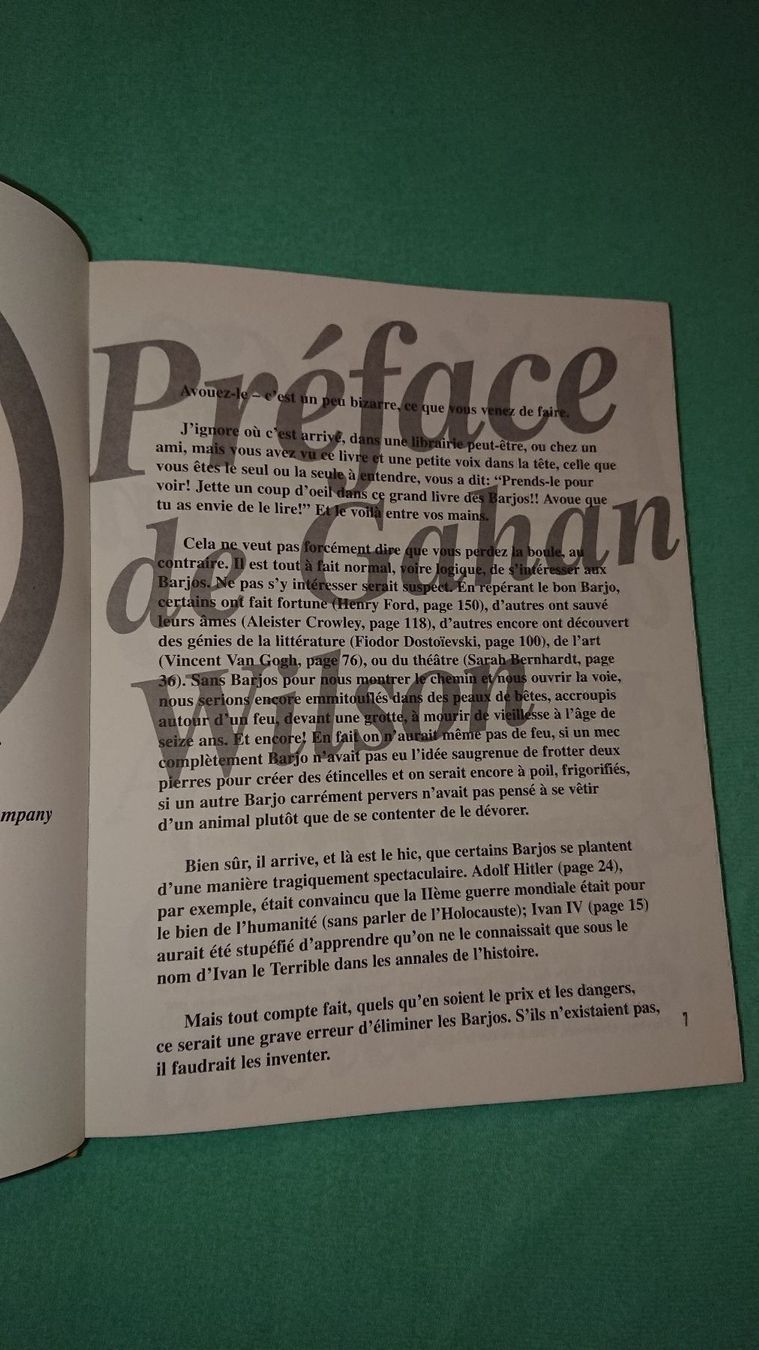 mpany
Préface
de Gahan
Wilson
Avouez-le – c'est un peu bizarre, ce que vous venez de faire.
J'ignore où c'est arrivé, dans une librairie peut-être, ou chez un
ami, mais vous avez vu ce livre et une petite voix dans la tête, celle que
vous êtes le seul ou la seule à entendre, vous a dit: “Prends-le pour
voir! Jette un coup d'oeil dans ce grand livre des Barjos!! Avoue que
tu as envie de le lire!” Et le voilà entre vos mains.
Cela ne veut pas forcément dire que vous perdez la boule, au
contraire. Il est tout à fait normal, voire logique, de s'intéresser aux
Barjos. Ne pas s'y intéresser serait suspect. En repérant le bon Barjo,
certains ont fait fortune (Henry Ford, page 150), d'autres ont sauvé
leurs âmes (Aleister Crowley, page 118), d'autres encore ont découvert
des génies de la littérature (Fiodor Dostoïevski, page 100), de l'art
(Vincent Van Gogh, page 76), ou du théâtre (Sarah Bernhardt, page
36). Sans Barjos pour nous montrer le chemin et nous ouvrir la voie,
nous serions encore emmitouflés dans des peaux de bêtes, accroupis
autour d'un feu, devant une grotte, à mourir de vieillesse à l'âge de
seize ans. Et encore! En fait on n'aurait même pas de feu, si un mec
complètement Barjo n'avait pas eu l'idée saugrenue de frotter deux
pierres pour créer des étincelles et on serait encore à poil, frigorifiés,
si un autre Barjo carrément pervers n'avait pas pensé à se vêtir
d'un animal plutôt que de se contenter de le dévorer.
Bien sûr, il arrive, et là est le hic, que certains Barjos se plantent
d'une manière tragiquement spectaculaire. Adolf Hitler (page 24),
par exemple, était convaincu que la IIème guerre mondiale était pour
le bien de l'humanité (sans parler de l'Holocauste); Ivan IV (page 15)
aurait été stupéfié d'apprendre qu'on ne le connaissait que sous le
nom d'Ivan le Terrible dans les annales de l'histoire.
Mais tout compte fait, quels qu'en soient le prix et les dangers,
ce serait une grave erreur d'éliminer les Barjos. S'ils n'existaient pas,
il faudrait les inventer.
7